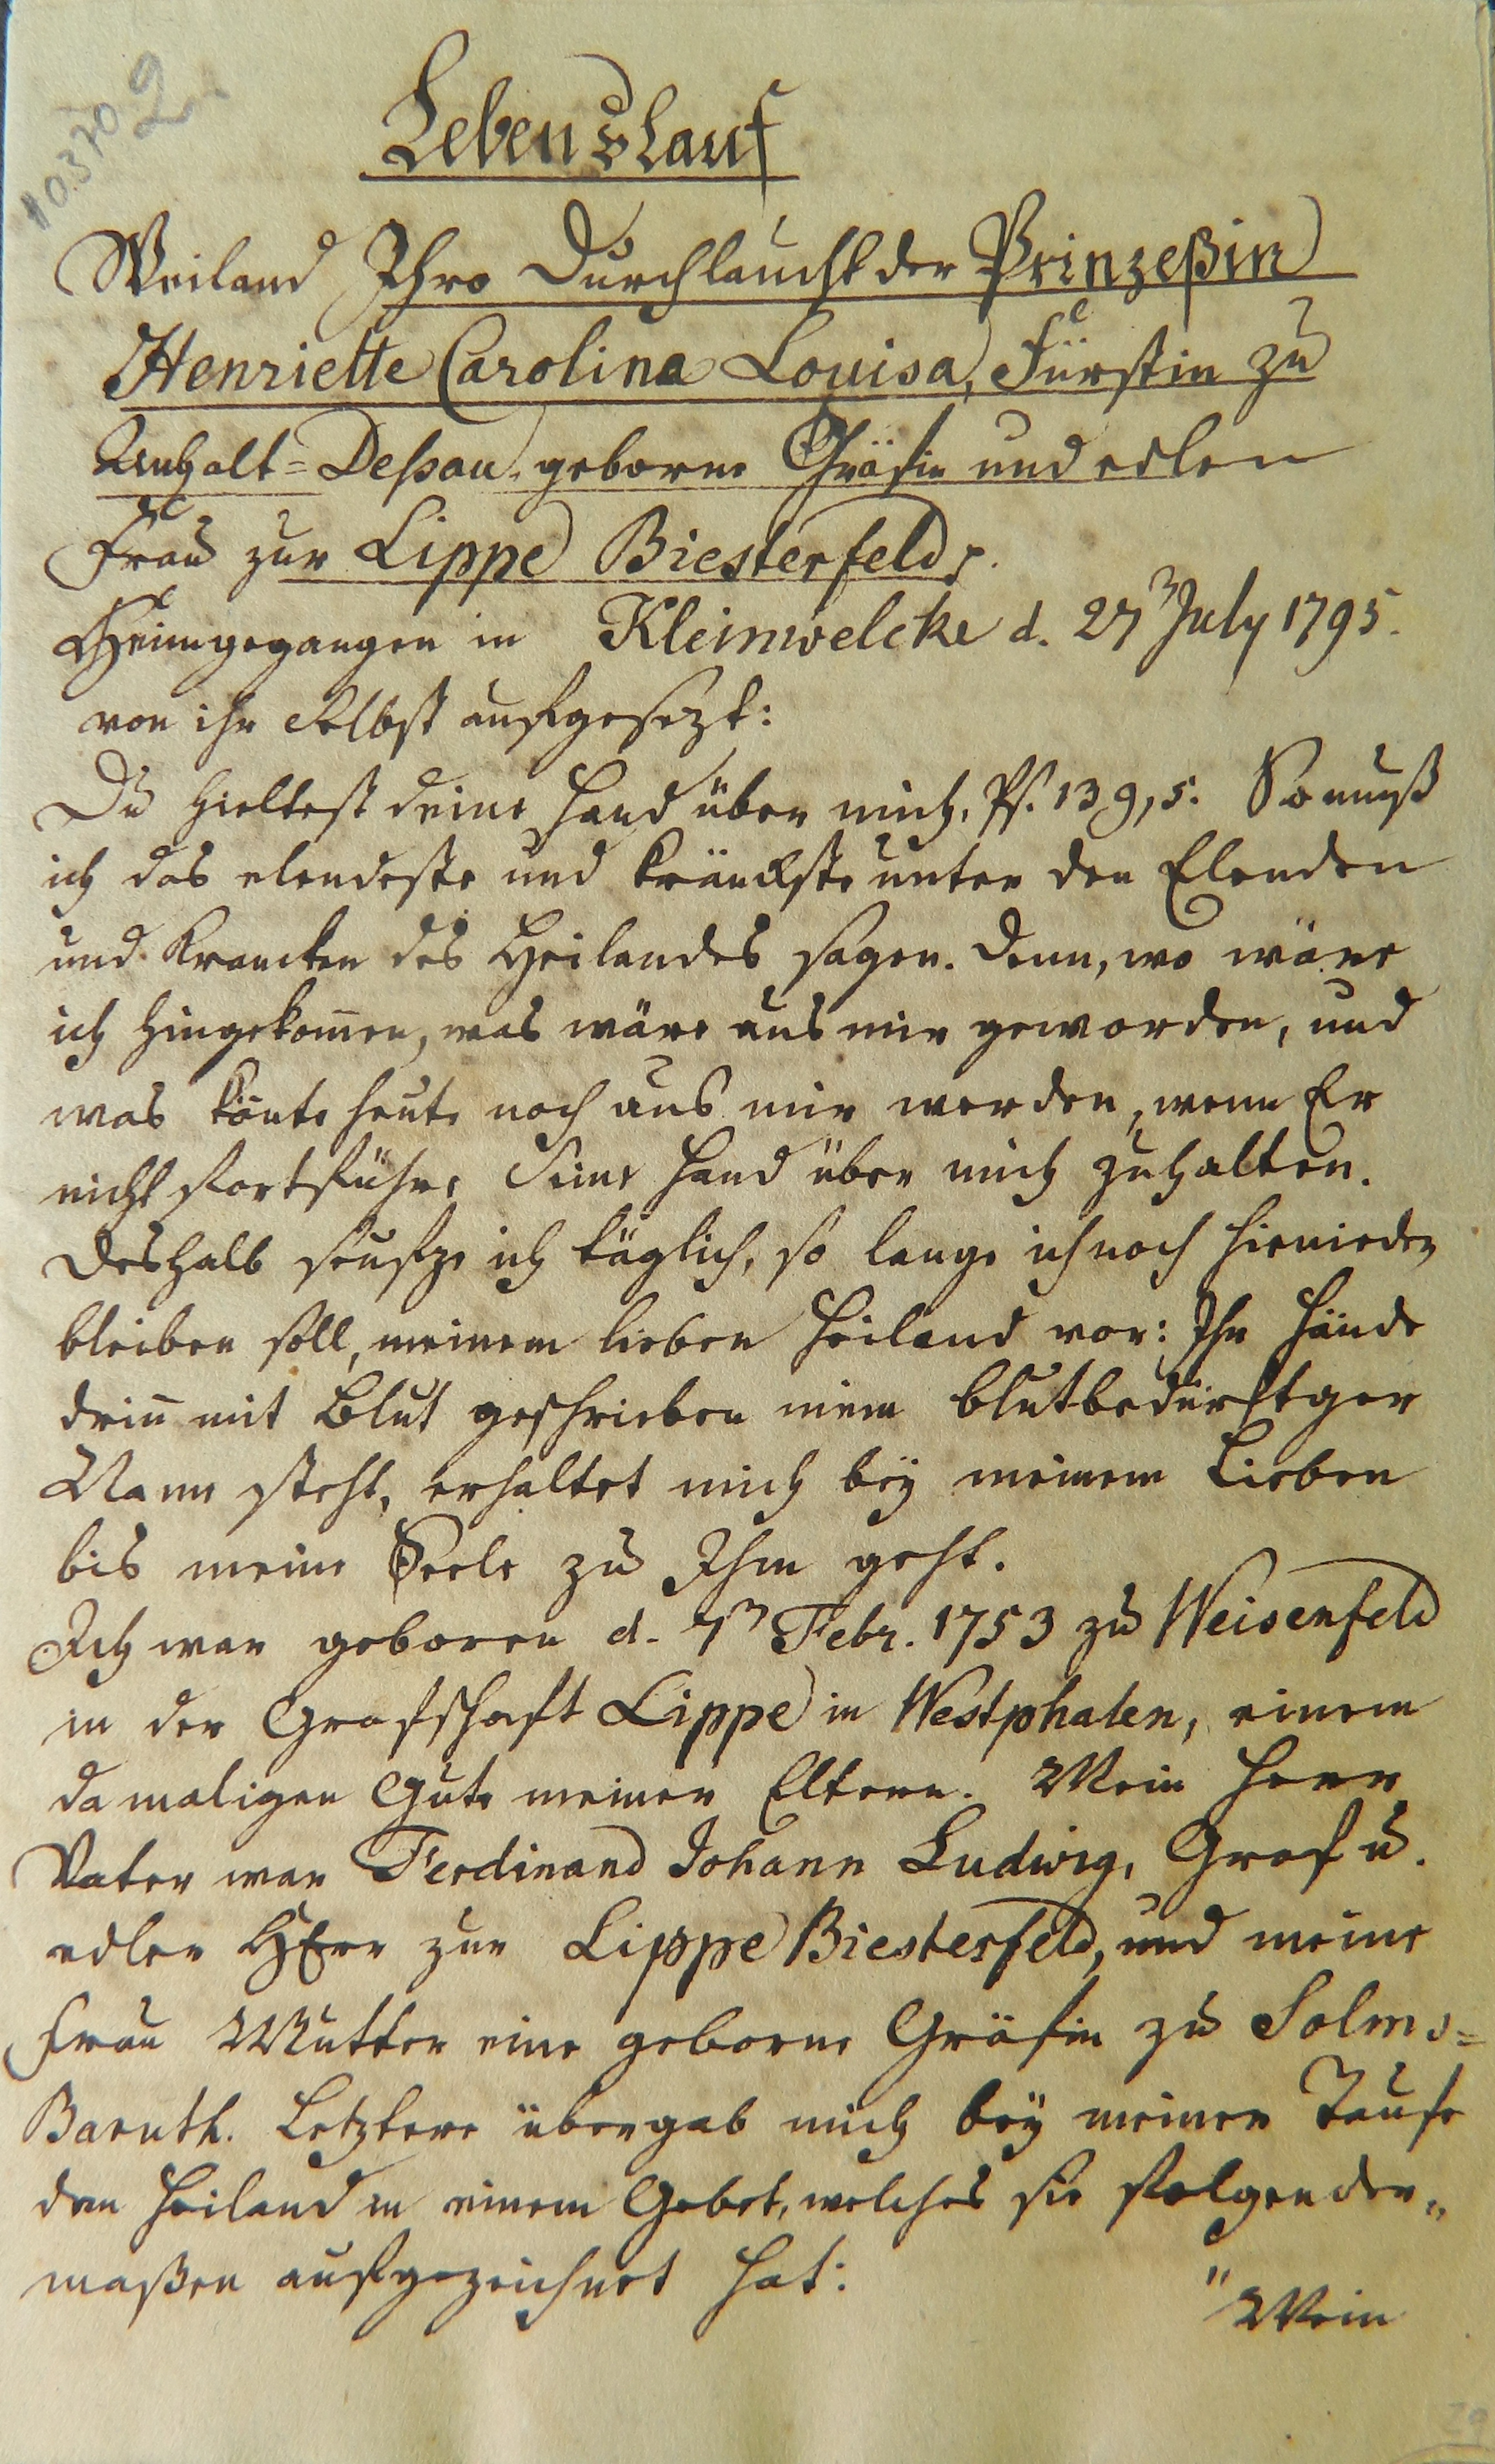 10370 2.
Lebenslauf
Weiland Ihro Durchlaucht der Prinzeßin
Henriette Carolina Louisa, Fürstin zu
Anhalt=Deßau, geborne Gräfin und edlen
Frau zur Lippe Biesterfeld,
Heimgegangen in Kleinwelcke d. 27 July 1795.
von ihr selbst aufgesezt:
Du hieltest deine Hand über mich. Ps. 139,5. So muß
ich das elendeste und kränckste unter den Elenden
und Krancken des Heilandes sagen. Denn, wo wäre
ich hingekom̅en, was wäre aus mir geworden, und
was könte heute noch aus mir werden, wenn Er
nicht fortführe Seine Hand über mich zuhalten.
Deshalb seufze ich täglich, so lange ich noch hienieden
bleiben soll, meinem lieben Heiland vor: Ihr Hände
drin̅ mit Blut geschrieben mein blutbedürftger
Nam steht, erhaltet mich bey meinem Lieben
bis meine Seele zu Ihm geht.
Ich war geboren d. 7 Febr. 1753 zu Weisenfeld
in der Grafschaft Lippe in Westphalen, einem
damaligen Gute meiner Eltern. Mein Herr
Vater war Ferdinand Johann Ludwig, Graf u.
edler HErr zur Lippe Biesterfeld, und meine
Frau Mutter eine geborne Gräfin zu Solms=
Baruth. Letztere übergab mich bey meiner Taufe
dem Heiland in einem Gebet, welches sie folgender„
maßen aufgezeichnet hat:
"Mein
29